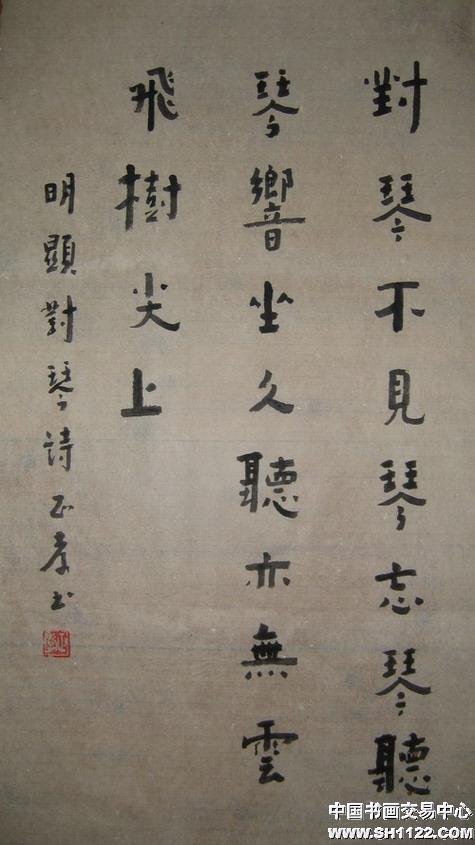 對琴不見琴忘琴聽
琴響坐久聽亦無雲
飛樹尖上
明顯對琴詩正孝书
中国书画交易中心
www.SH1122.com